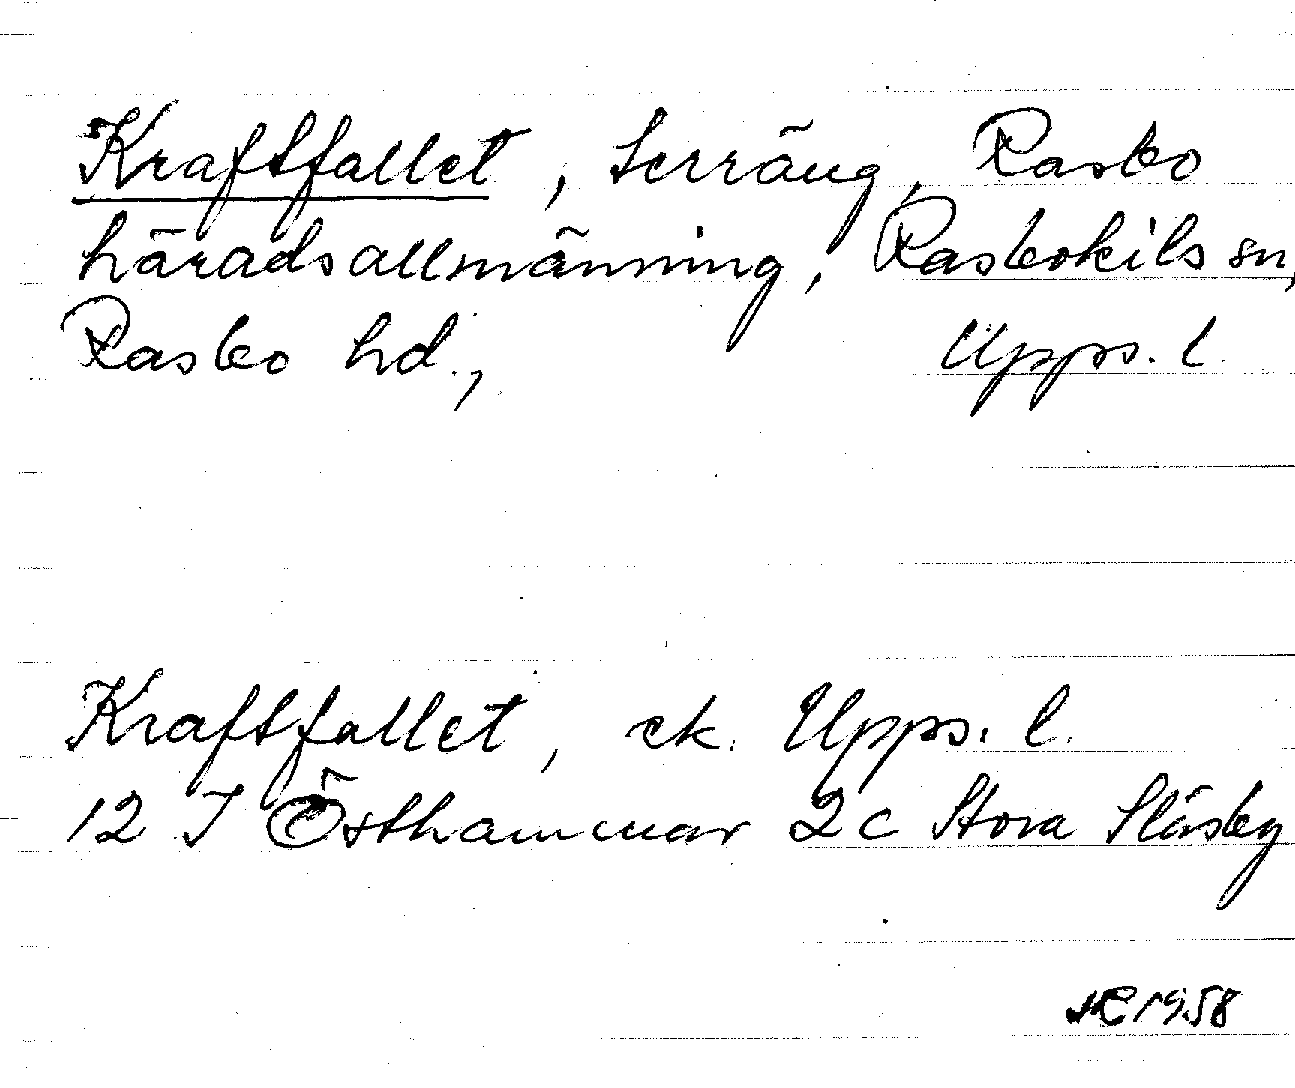 Kraftfallet, terräng, Rasbo
häradsallmänning, Rasbokils sn,
Rasbo hd., Upps. l.
Kraftfallet, ek. Upps. l.
12 I Östhammar 2c Stora Släsby
1958